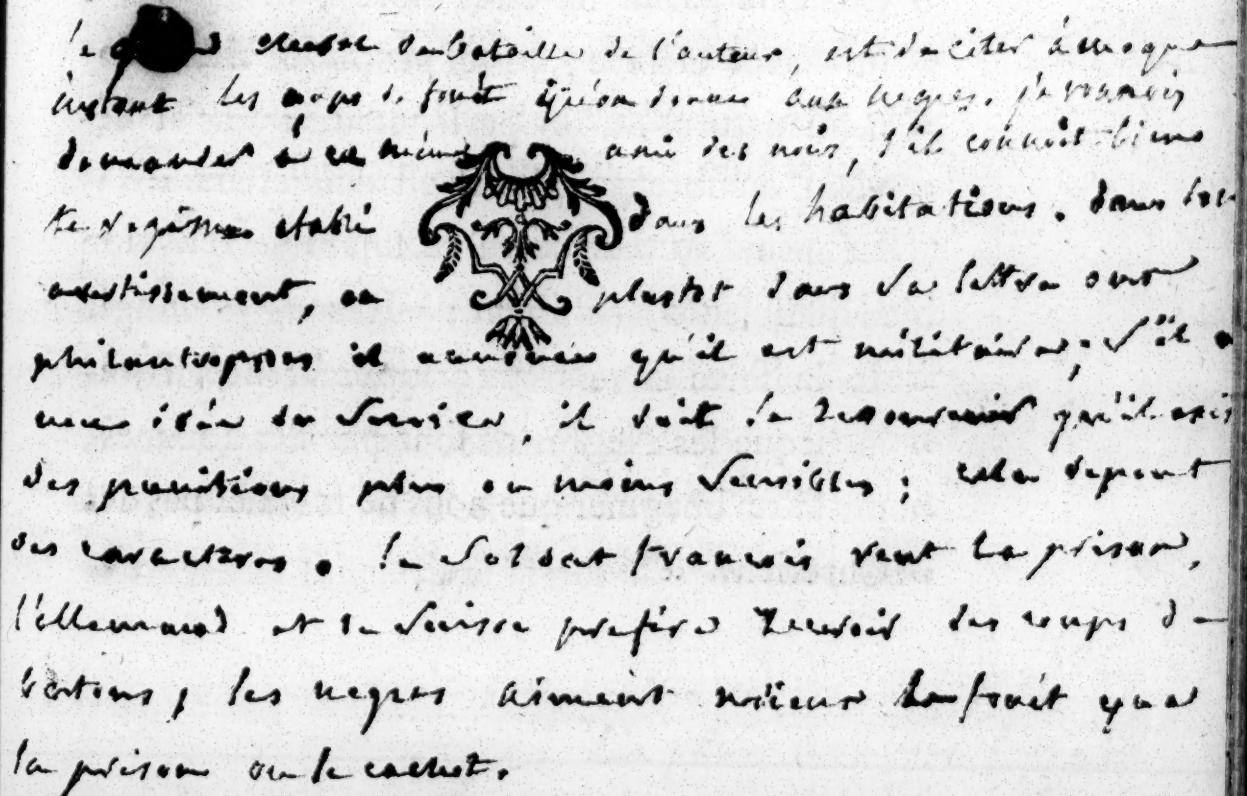 le grand cheval de bataille de l'auteur, est de citer à chaque
instant les coups de fouët qu'on donne aux negres. je voudrois
demander à ce même ami des noirs, s'il connoît bien
le regime etabli dans les habitations. dans son
avertissement, ou plustot dans sa lettre aux
philantropes il annonce qu'il est militaire; s'il a
une idée du service, il doit se ressouvenir qu'il exis
des punitions plus ou moins sensibles; cela depent
des caracteres. le soldat francois veut la prison,
l'allemand et le suisse prefère recevoir des coups de
batons, les negres aiment mieux le fouët que
la prison ou le cachot.